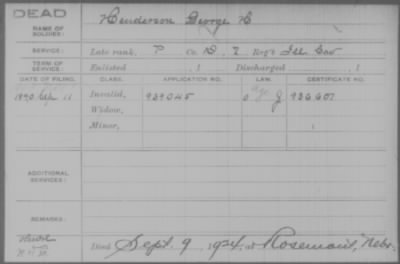 DEAD
NAME OF SOLDIER: Henderson George H
SERVICE: Late rank, P Co. D, 7 Reg't Ill Cav
TERM OF SERVICE: Enlisted , 1 Discharged , 1
DATE OF FILING. CLASS. APPLICATION NO. LAW. CERTIFICATE NO.
1890 Invalid, 939045 936607
Widow,
Minor,
ADDITIONAL SERVICES:
REMARKS:
Died Sept. 9, 1924, at Rosemont, Nebr.